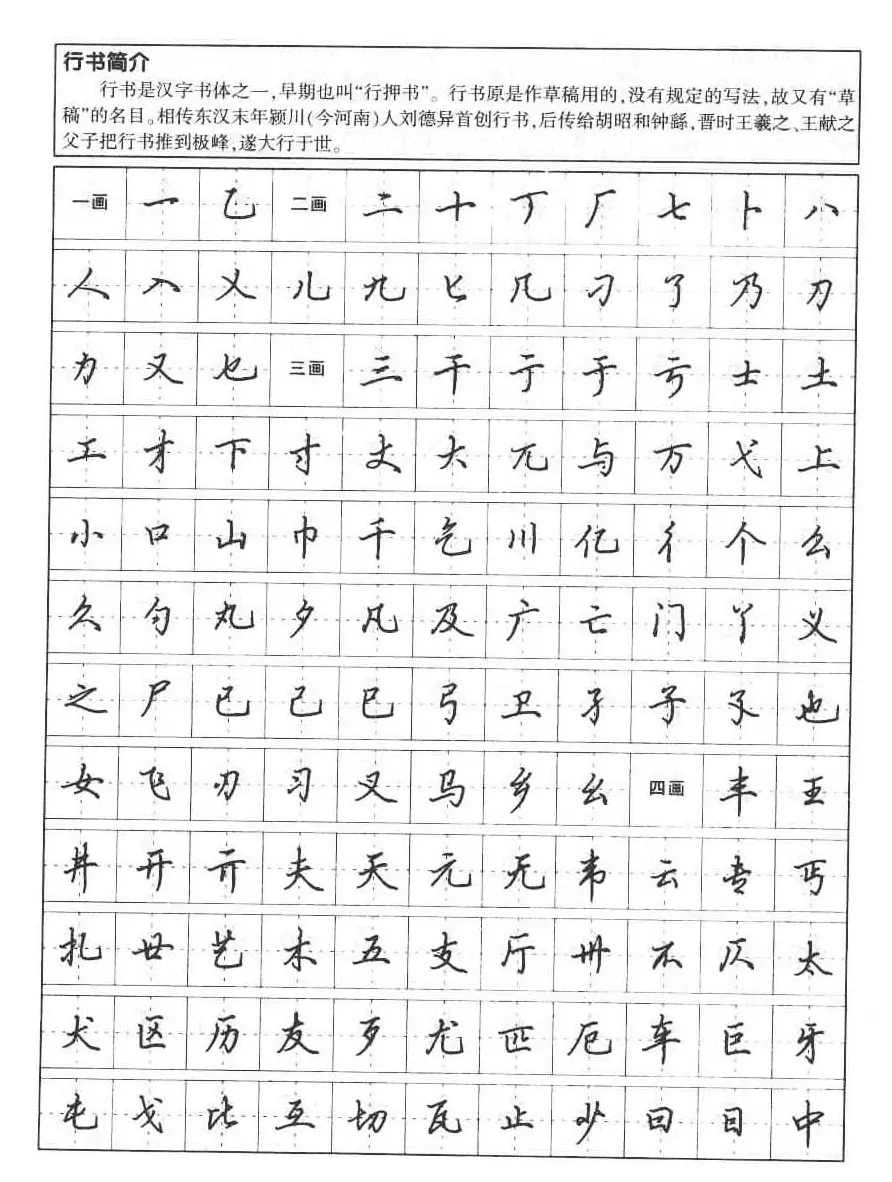 行书简介
行书是汉字书体之一，早期也叫“行押书”。行书原是作草稿用的，没有规定的写法，故又有“草
稿”的名目。相传东汉末年颍川（今河南）人刘德异首创行书，后传给胡昭和钟繇，晋时王羲之、王献之
父子把行书推到极峰，遂大行于世。
一画 一 乙 二画 二 十 丁 厂 七 卜 八
人 入 乂 儿 九 匕 几 刁 了 乃 刀
力 又 乜 三画 三 干 亍 于 亏 士 土
工 才 下 寸 丈 大 兀 与 万 弋 上
小 口 山 巾 千 乞 川 亿 彳 个 么
久 勺 丸 夕 凡 及 广 亡 门 丫 义
之 尸 已 己 巳 弓 卫 孑 子 孓 也
女 飞 刃 习 叉 马 乡 幺 四画 丰 王
井 开 亓 夫 天 元 无 韦 云 专 丐
扎 廿 艺 木 五 支 厅 卅 不 仄 太
犬 区 历 友 歹 尤 匹 厄 车 巨 牙
屯 戈 比 互 切 瓦 止 少 曰 日 中